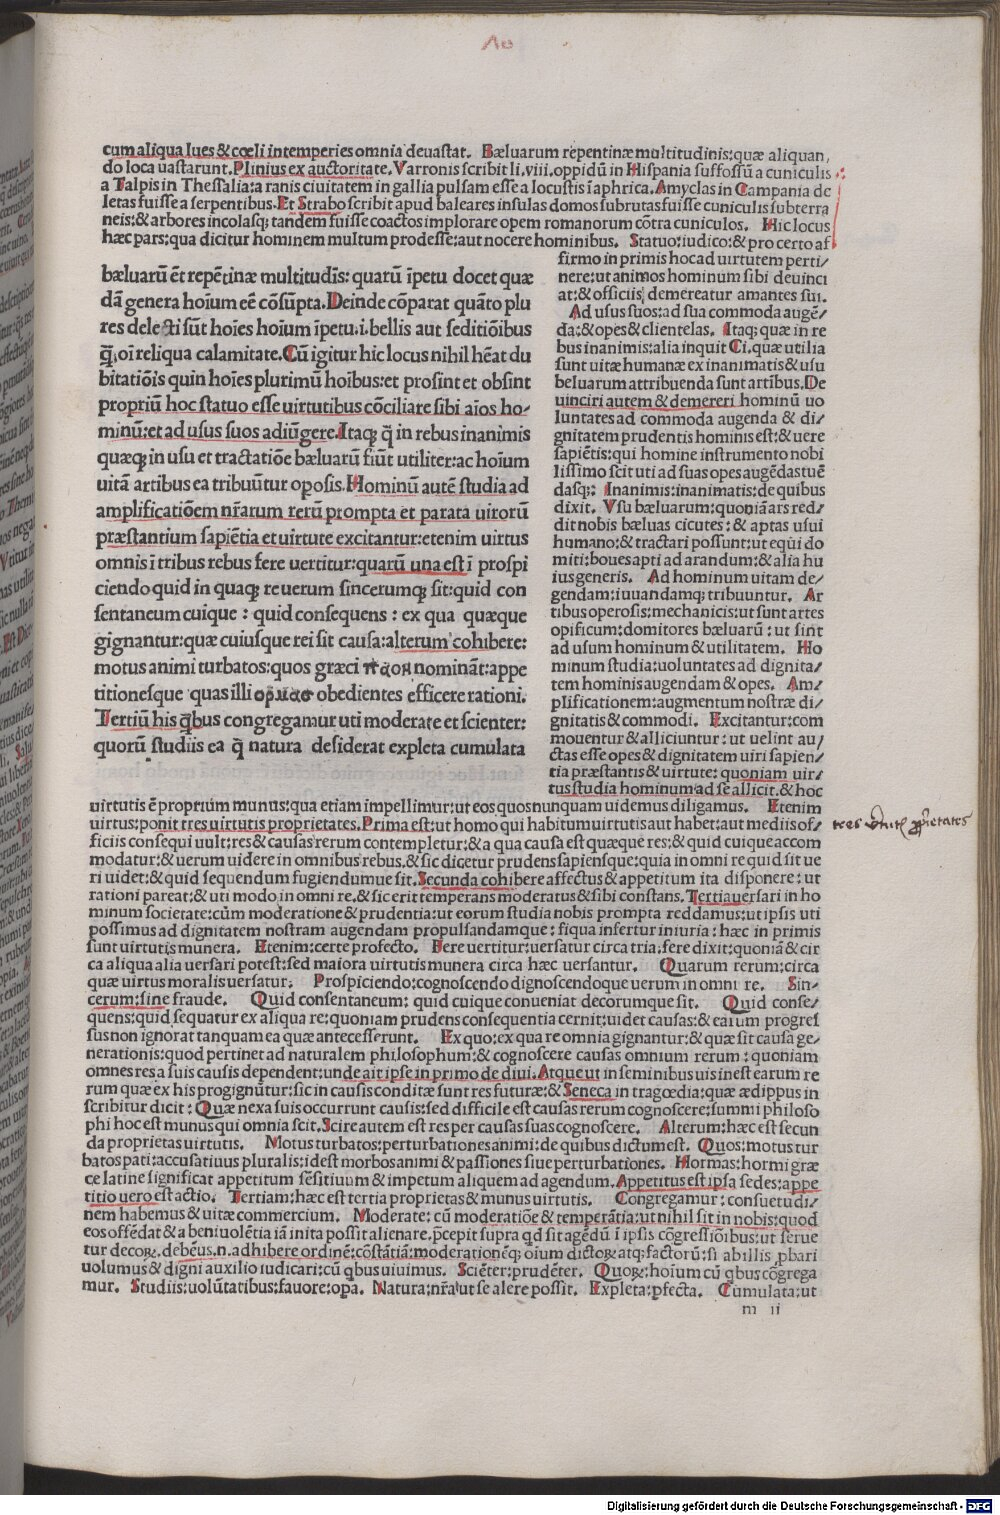 cum aliqua lues & cœli intemperies omnia deuastat. Bæluarum repentinæ multitudinis: quæ aliquan,
do loca uastarunt. Plinius ex auctoritate. Varronis scribit li. viii. oppidū in Hispania suffossū a cuniculis
a Talpis in Thessalia: a ranis ciuitatem in gallia pulsam esse a locustis ī aphrica. Amyclas in Campania de
letas fuisse a serpentibus. Et Strabo scribit apud baleares insulas domos subrutas fuisse cuniculis subterra
neis: & arbores incolasq; tandem fuisse coactos implorare opem romanorum cōtra cuniculos. Hic locus
hæc pars: qua dicitur hominem multum prodesse: aut nocere hominibus. Statuo: iudico: & pro certo af
bæluarū ēt repētinæ multitudīs: quarū īpetu docet quæ
dā genera hoīum eē cōsūpta. Deinde cōparat quāto plu
res delecti sūt hoīes hoīum īpetu. i. bellis aut seditiōibus
q̄, oī reliqua calamitate. Cū igitur hic locus nihil hēat du
bitatiōis quin hoīes plurimū hoībus: et prosint et obsint
propriū hoc statuo esse uirtutibus cōciliare sibi aīos ho-
minū: et ad usus suos adiūgere. Itaq; q̄ in rebus inanimis
quæq; in usu et tractatiōe bæluarū fiūt utiliter: ac hoīum
uitā artibus ea tribuūtur oposis. Hominū autē studia ad
amplificatiōem nr̄arum rerū prompta et parata uirorū
præstantium sapiētia et uirtute excitantur: etenim uirtus
omnis ī tribus rebus fere uertitur: quarū una est ī prospi
ciendo quid in quaq; re uerum sincerumq; sit: quid con
sentaneum cuique: quid consequens: ex qua quæque
gignantur: quæ cuiusque rei sit causa: alterum cohibere:
motus animi turbatos: quos græci παθη nomināt: appe
titionesque quas illi ορμας obedientes efficere rationi.
Tertiū his q̄bus congregamur uti moderate et scienter:
quorū studiis ea q̄ natura desiderat expleta cumulata
firmo in primis hoc ad uirtutem perti-
nere: ut animos hominum sibi deuinci
at: & officiis demereatur amantes sui.
Ad usus suos: ad sua commoda augē-
da: & opes & clientelas. Itaq; quæ in re
bus inanimis: alia inquit Ci. quæ utilia
sunt uitæ humanæ ex inanimatis & usu
beluarum attribuenda sunt artibus. De
uinciri autem & demereri hominū uo
luntates ad commoda augenda & di-
gnitatem prudentis hominis est: & uere
sapiētis: qui homine instrumento nobi
lissimo scit uti ad suas opes augēdas tuē
dasq;: Inanimis: inanimatis: de quibus
dixit. Vsu bæluarum: quoniā ars red-
dit nobis bæluas cicutes: & aptas usui
humano: & tractari possunt: ut equi do
miti: boues apti ad arandum: & alia hu
ius generis. Ad hominum uitam de-
gendam: iuuandamq; tribuuntur. Ar
tibus operosis: mechanicis: ut sunt artes
opificum: domitores bæluarū: ut sint
ad usum hominum & utilitatem. Ho
minum studia: uoluntates ad dignita-
tem hominis augendam & opes. Am-
plificationem: augmentum nostræ di-
gnitatis & commodi. Excitantur: com
mouentur & alliciuntur: ut uelint au-
ctas esse opes & dignitatem uiri sapien-
tia præstantis & uirtute: quoniam uir-
tus studia hominum ad se allicit. & hoc
uirtutis ē proprium munus: qua etiam impellimur: ut eos quos nunquam uidemus diligamus. Etenim
uirtus: ponit tres uirtutis proprietates. Prima est: ut homo qui habitum uirtutis aut habet: aut mediis of-
tres v̄tut[is] p̄prietates
ficiis consequi uult: res & causas rerum contempletur: & a qua causa est quæque res: & quid cuique accom
modatur: & uerum uidere in omnibus rebus. & sic dicetur prudens sapiensque: quia in omni re quid sit ue
ri uidet: & quid sequendum fugiendumue sit. Secunda cohibere affectus & appetitum ita disponere: ut
rationi pareat: & uti modo in omni re. & sic erit temperans moderatus & sibi constans. Tertia uersari in ho
minum societate: cūm moderatione & prudentia: ut eorum studia nobis prompta reddamus: ut ipsis uti
possimus ad dignitatem nostram augendam propulsandamque: siqua infertur iniuria: hæc in primis
sunt uirtutis munera. Etenim: certe profecto. Fere uertitur: uersatur circa tria: fere dixit: quoniā & cir
ca aliqua alia uersari potest: sed maiora uirtutis munera circa hæc uersantur. Quarum rerum: circa
quæ uirtus moralis uersatur. Prospiciendo: cognoscendo dignoscendoque uerum in omni re. Sin-
cerum: sine fraude. Quid consentaneum: quid cuique conueniat decorumque sit. Quid conse-
quens: quid sequatur ex aliqua re: quoniam prudens consequentia cernit: uidet causas: & earum progres
sus non ignorat tanquam ea quæ antecesserunt. Ex quo: ex qua re omnia gignantur: & quæ sit causa ge-
nerationis: quod pertinet ad naturalem philosophum: & cognoscere causas omnium rerum: quoniam
omnes res a suis causis dependent: unde ait ipse in primo de diui. Atque ut in seminibus uis inest earum re
rum quæ ex his progignūtur: sic in causis conditæ sunt res futuræ: & Seneca in tragœdia: quæ ædippus in
scribitur dicit: Quæ nexa suis occurrunt causis: sed difficile est causas rerum cognoscere: summi philoso
phi hoc est munus qui omnia scit. Scire autem est res per causas suas cognoscere. Alterum: hæc est secun
da proprietas uirtutis. Motus turbatos: perturbationes animi: de quibus dictum est. Quos: motus tur
batos pati: accusatiuus pluralis: id est morbos animi & passiones siue perturbationes. Hormas: hormi græ
ce latine significat appetitum sēsitiuum & impetum aliquem ad agendum. Appetitus est ipsa sedes: appe
titio uero est actio. Tertiam: hæc est tertia proprietas & munus uirtutis. Congregamur: consuetudi-
nem habemus & uitæ commercium. Moderate: cū moderatiōe & temperātia: ut nihil sit in nobis: quod
eos offēdat & a beniuolētia iā inita possit alienare. p̄cepit supra qd sit agēdū ī ipsis cōgressiōibus: ut serue
tur decorꝝ. debēus. n. adhibere ordinē: cōstātiā: moderationēq; oīum dictorꝝ atq; factorū: si ab illis ꝓbari
uolumus & digni auxilio iudicari: cū q̄bus uiuimus. Sciēter: prudēter. Quorꝝ: hoīum cū q̄bus cōgrega
mur. Studiis: uolūtatibus: fauore: opa. Natura: nr̄a ut se alere possit. Expleta: pfecta. Cumulata: ut
m ii
Digitalisierung gefördert durch die Deutsche Forschungsgemeinschaft - DFG